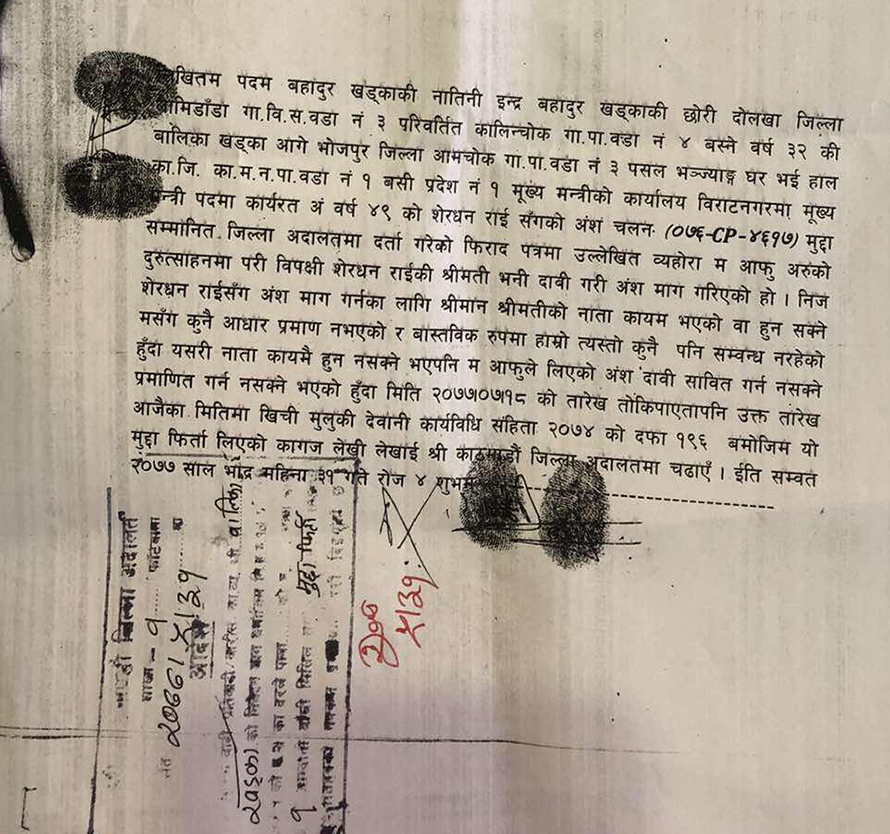 लिखितम पदम बहादुर खड्काकी नातिनी इन्द्र बहादुर खड्काकी छोरी दोलखा जिल्ला
लामिडाँडा गा.वि.स.वडा नं ३ परिवर्तित कालिन्चोक गा.पा.वडा नं ४ बस्ने वर्ष ३२ की
बालिका खड्का आगे भोजपुर जिल्ला आमचोक गा.पा.वडा नं ३ पसल भञ्ज्याङ्ग घर भई हाल
का.जि. का.म.न.पा.वडा नं १ बसी प्रदेश नं १ मूख्य मन्त्रीको कार्यालय विराटनगरमा मूख्य
मन्त्री पदमा कार्यरत अं वर्ष ४९ को शेरधन राई सँगको अंश चलन (०७६-CP-४६१७) मुद्दा
सम्मानित जिल्ला अदालतमा दर्ता गरेको फिराद पत्रमा उल्लेखित व्यहोरा म आफु अरुको
दुरुत्साहनमा परी विपक्षी शेरधन राईकी श्रीमती भनी दाबी गरी अंश माग गरिएको हो । निज
शेरधन राईसँग अंश माग गर्नका लागि श्रीमान श्रीमतीको नाता कायम भएको वा हुन सक्ने
मसँग कुनै आधार प्रमाण नभएको र बास्तविक रुपमा हाम्रो त्यस्तो कुनै पनि सम्वन्ध नरहेको
हुँदा यसरी नाता कायमै हुन नसक्ने भएपनि म आफुले लिएको अंश दावी सावित गर्न नसक्ने
प्रमाणित गर्न नसक्ने भएको हुँदा मिति २०७७।०७।१८ को तारेख तोकिपाएतापनि उक्त तारेख
आजैका मितिमा खिची मुलुकी देवानी कार्यविधि संहिता २०७४ को दफा १९६ बमोजिम यो
मुद्दा फिर्ता लिएको कागज लेखी लेखाई श्री काठमाडौं जिल्ला अदालतमा चढाएँ । ईति सम्वत
२०७७ साल भाद्र महिना ३१ गते रोज ४ शुभम
जिल्ला अदालत
शाखा - १ फाँटबाट
२०७७।५।३१
आदेश
मुद्दा फिर्ता
५।३१